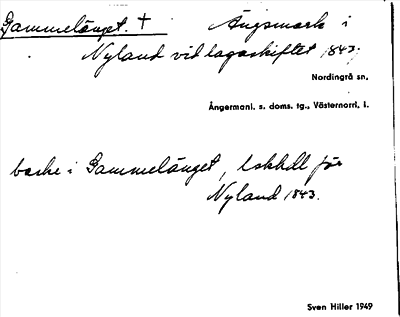 Gammelänget. † Ängsmark i
Nyland vid lagaskiftet 1843.
Nordingrå sn.
Ångermanl. s. doms. tg., Västernorrl. l.
backe i Gammelänget, lskhdl för
Nyland 1843.
Sven Hiller 1949